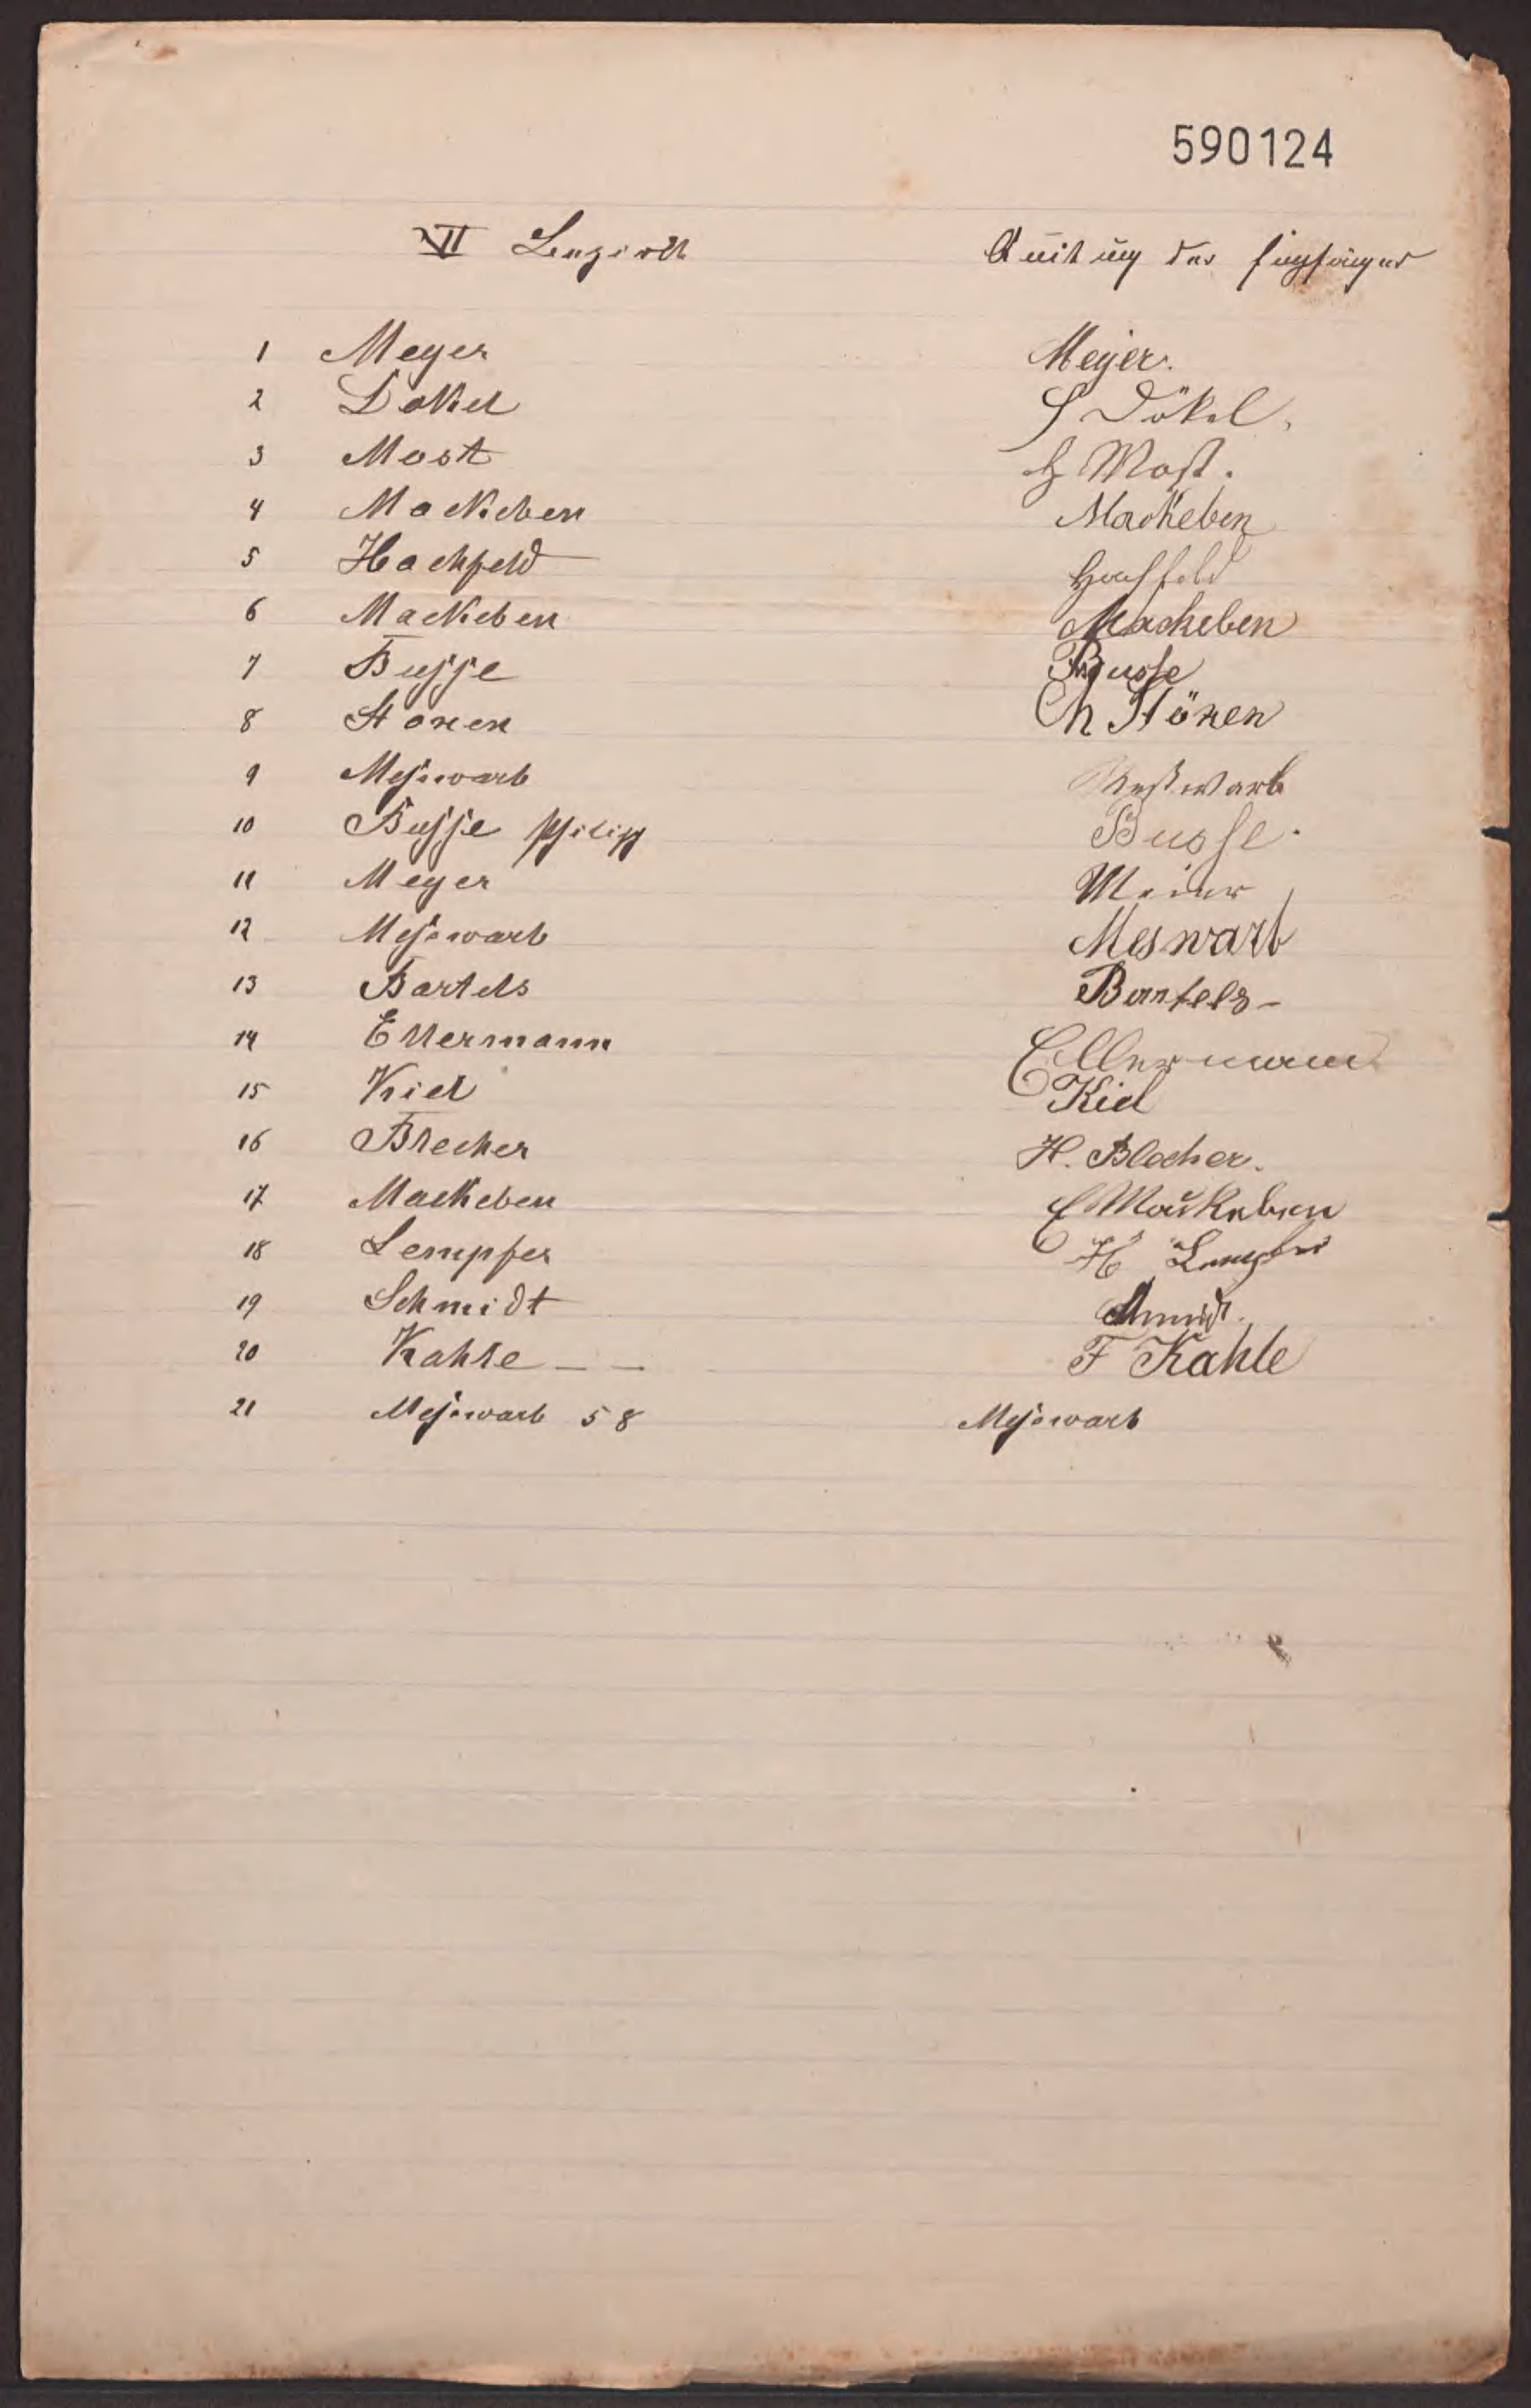 590124
VII Quitung der Empfänger
1 Meyer Meyer.
2 Dökel Dökel.
3 Most H Most.
4 Mackeben Mackeben
5 Hachfeld Hachfeld
6 Mackeben Mackeben
7 Busse Busse
8 Stonen Ch Stönen
9 Messwarb Meßwarb
10 Busse Philipp Busse.
11 Meyer Meier
12 Messwarb Meswarb
13 Bartels Bartels-
14 Ellermann Ellermann
15 Kiel Kiel
16 Blecher H. Blecher.
17 Mackeben E Mackeben
18 Lempfer H Lempfer
19 Schmidt Schmidt.
20 Kahle - - F Kahle
21 Messwarb 58 Messwarb